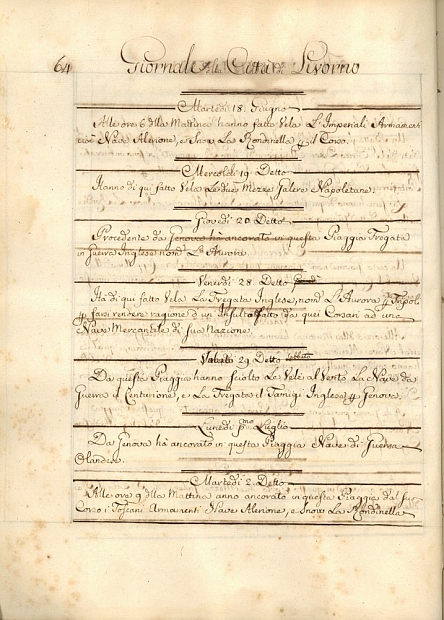 64 Giornale della Città di Livorno
Martedì 18 Giugno
Alle ore 6 della Mattina hanno fatto Vela L'Imperiali Armamenti
cioè Nave Alerione, e Snow La Rondinella il Corso.
Mercoldì 19 Detto
Hanno di qui fatto Vela Le due Mezze Galere Napoletane.
Giovedì 20 Detto
Procedente da Genova hà ancorato in questa Piaggia Fregata
in Guerra Inglese nom.a L'Aurora
Venerdì 28 Detto
Hà di qui fatto Vela La Fregata Inglese nom.a L'Aurora p Tripoli
p farsi rendere ragione d'un Insulto fatto da quei Corsari ad una
Nave Mercantile di sua Nazione.
Sabato 29 Detto Sabbato
Da questa Piaggia hanno sciolto Le Vele al Vento La Nave da
Guerra il Centurione, e La Fregata il Tamigi Inglese p Genova.
Lunedì pmo Luglio
Da Genova hà ancorato in questa Piaggia Nave di Guerra
Olandese.
Martedì 2 Detto
Alle ore 9 della Mattina anno ancorato in questa Piaggia dal suo
Corso i Toscani Armamenti Nave Alerione, e Snow La Rondinella